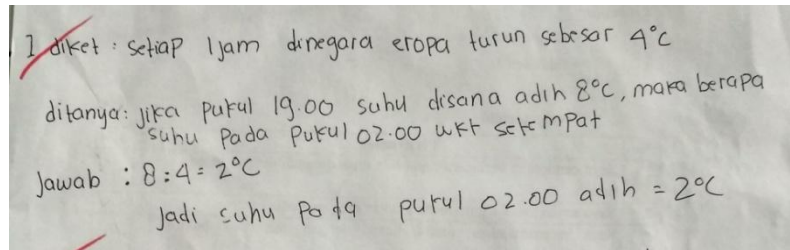 1 diket : setiap 1 jam dinegara eropa turun sebesar 4°C
ditanya: jika pukul 19.00 suhu disana adlh 8°C, maka berapa
suhu pada pukul 02.00 wkt setempat
Jawab : 8:4 = 2°C
Jadi suhu pada pukul 02.00 adlh = 2°C